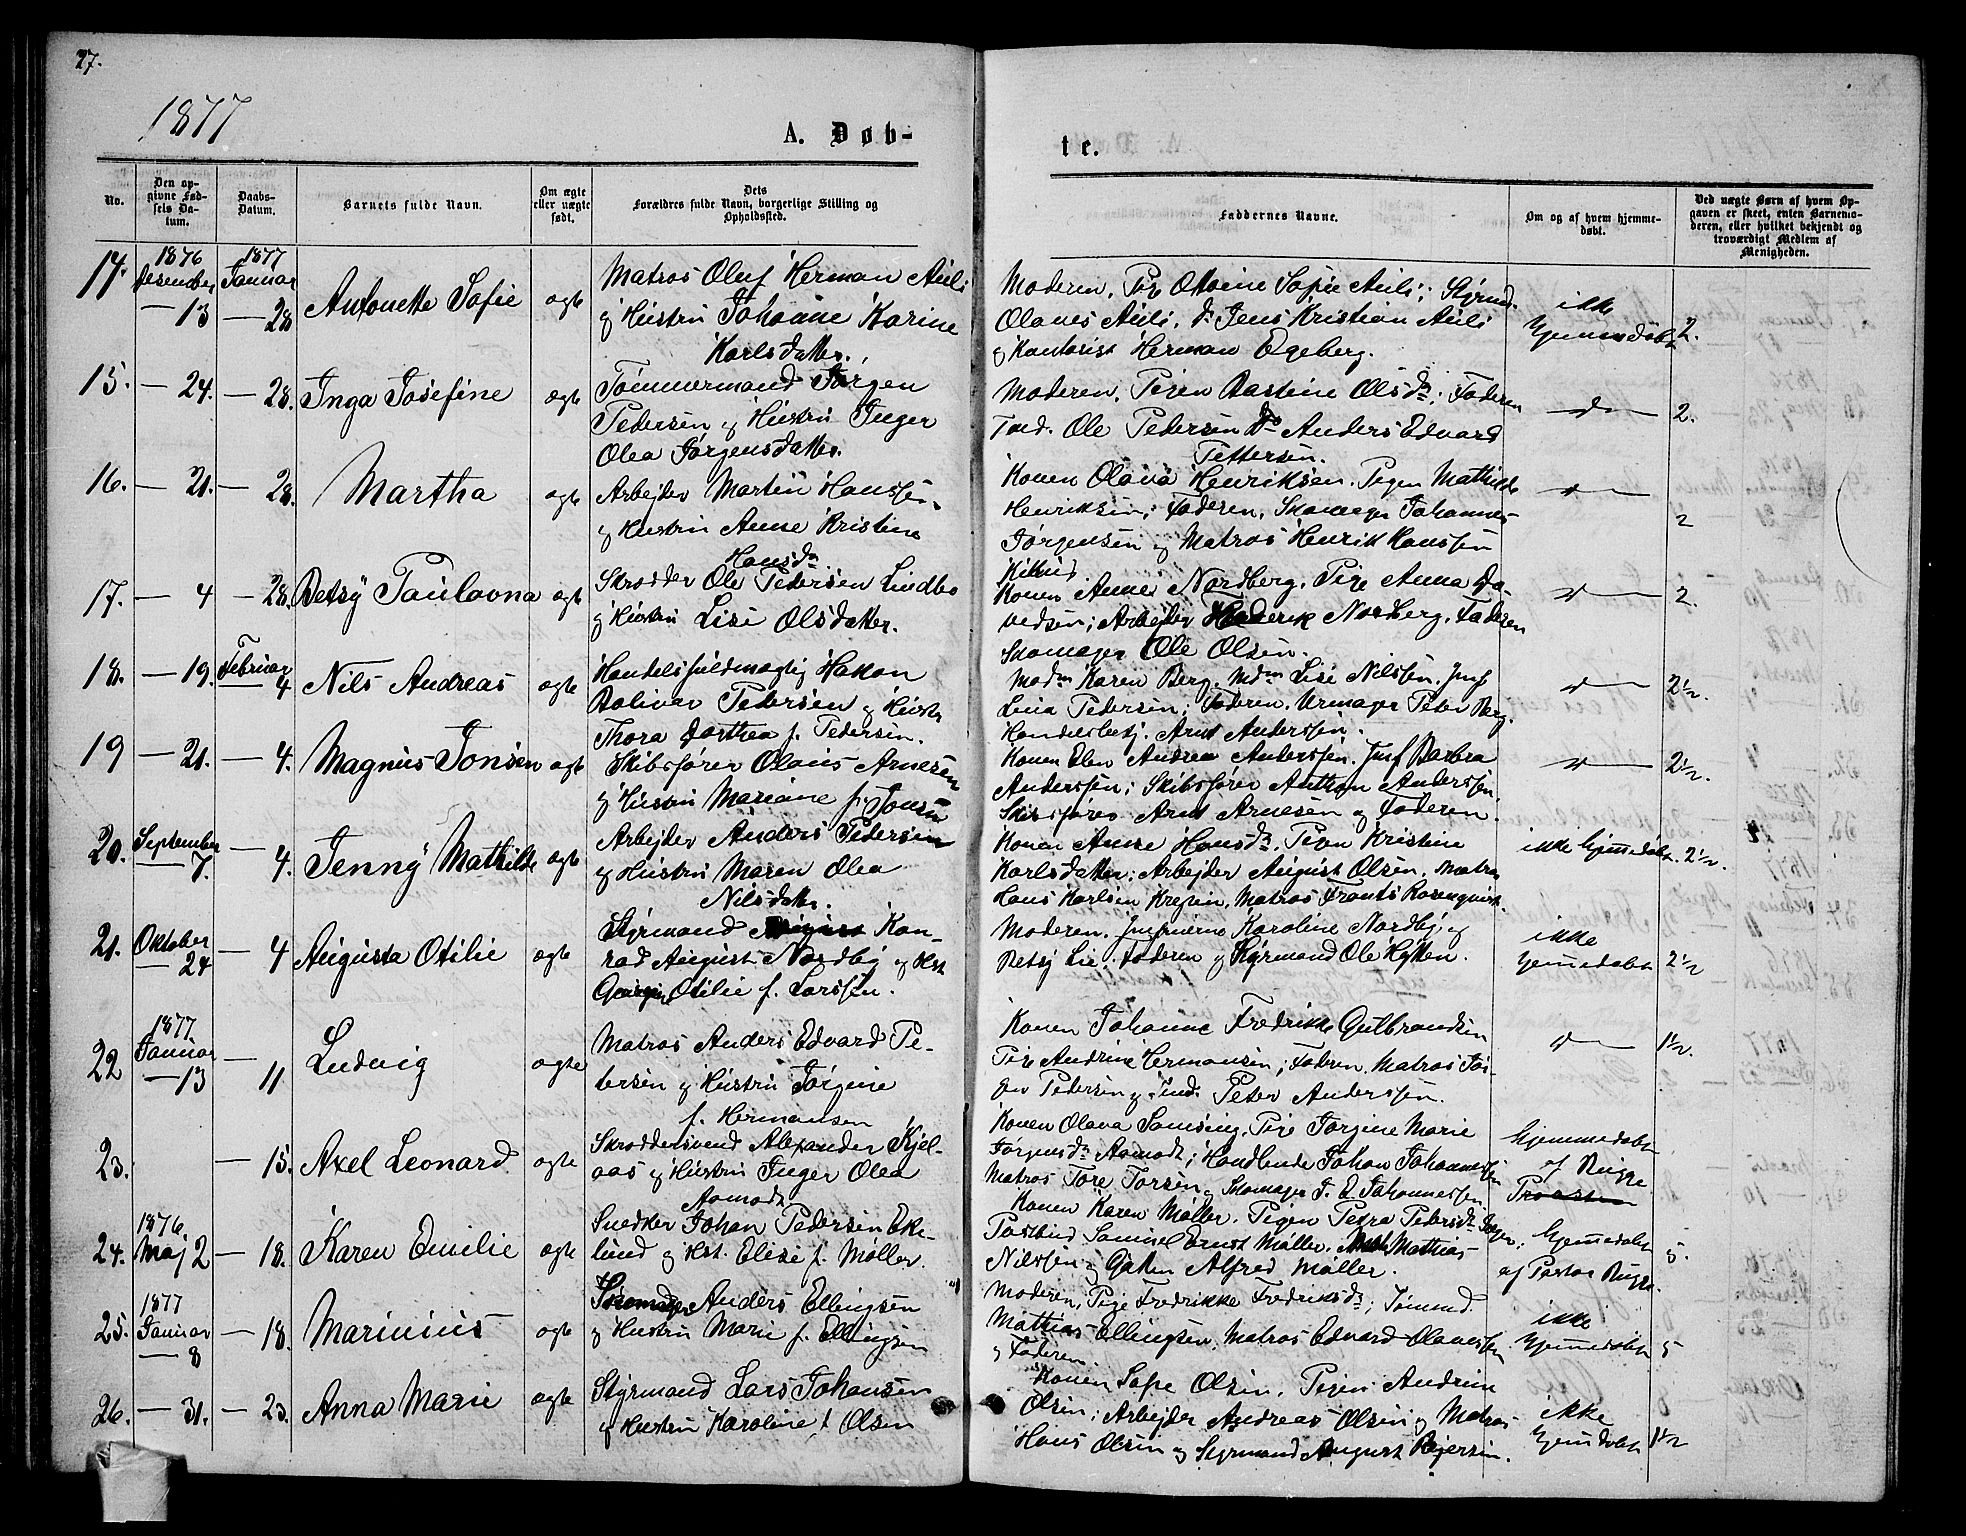 27.
1877
A. Døb-
te.
No.
Den op-
givne Fød-
sels Da-
tum.
Daabs-
Datum.
Barnets fulde Navn.
Om ægte
eller uægte
født.
Dets
Forældres fulde Navn, borgerlige Stilling og
Opholdssted.
Faddernes Navne.
Om og af hvem hjemme-
døbt.
Ved uægte Børn af hvem Op-
gaven er skeet, enten Barnemo-
deren, eller hvilket bekjendt og
troværdigt Medlem af
Menigheden.
14.
1876
Desember
— 13
1877
Januar
— 28
Antonette Sofie
ægte
Matros Oluf Herman Auli
og Hustru Johanne Karine
Karlsdatter.
Moderen, Pige Ottoine Sofie Auli; Styrmd.
Olaves Auli, do Jens Kristian Auli
og Kontorist Herman Egeberg.
ikke
hjemmedøbt
2.
15.
— 24.
— 28.
Inga Josefine
ægte
Tømmermand Jørgen
Pedersen og Hustru Inger
Olea Jørgensdatter.
Moderen, Pigen Bastine Olsdr; Faderen
Tømd. Ole Pedersen do Anders Edvard
Pettersen.
— do —
2.
16.
— 21.
— 28.
Martha
ægte
Arbejder Martin Hanssen
og Hustru Anne Kristine
Hansdr.
Konen Olava Henriksen, Pigen Mathilde
Henriksen; Faderen, Skomager Johannes
Jørgensen og Matros Henrik Hanssen
2
17.
— 4
— 28.
Betsy Paulovna
ægte
Skrædder Ole Pedersen Lindbo
og Hustru Lise Olsdatter.
Konen Anne Nordberg, Pige Anna Da-
vedsen; Arbejder Nordberg, Faderen
Skomager Ole Olsen.
2.
18.
— 19.
Februar
— 4
Nils Andreas
ægte
Handelsfuldmægtig Hakon
Bolivar Pedersen og Hustr
Thora Dorthea f. Pedersen.
Madm Karen Berg, Mdm Lise Nilssen, Jmf
Lina Pedersen; Faderen, Urmager Peter Berg,
Handelsbetj. Arnt Anderssen.
2½.
19
— 21.
— 4.
Magnus Jonsen
ægte
Skibsfører Olaus Arnesen
og Hustru Mariane f. Jonsen
Konen Elen Andrea Anderssen, Jmf Barbra
Anderssen; Skibsfører Anthon Anderssen,
Skibsfører Arnt Arnesen og Faderen.
2½.
20.
September
— 7.
— 4.
Jenny Mathilde
ægte
Arbejder Anders Pedersen
og Hustru Maren Olea
Nilsdatter.
Konen Anne Hansdr, Pigen Kristine
Karlsdatter; Arbejder August Olsen, Matros
Hans Karlsen Krefin, Matros Frants Rosenqvist.
ikke hjemedøbt.
2½.
21.
Oktober
— 24
— 4
Augusta Otilie
ægte
Styrmand Kon-
rad August Nordby og Hst
Otilie f. Larssen.
Moderen, Jmfruerne Karoline Nordby og
Betsy Lie, Faderen og Styrmand Ole Hytten.
ikke
hjemedøbt
2½
22
1877
Januar
— 13
— 11
Ludvig
ægte
Matros Anders Edvard Pe-
dersen og Hustru Jørgine
f. Hermansen
Konen Johanne Fredrikke Gulbrandsen
Pige Andrine Hermansen; Faderen, Matros Jør-
gen Pedersen og Tmd. Peter Anderssen.
1½.
23.
— 15.
Axel Leonard
ægte
Skræddersvend Alexander Kjel-
aas og Hustru Inger Olea
Aamodt
Konen Olava Samsing, Pige Jørgine Marie
Jørgensdr Aamodt; Handlende Johan Johannessen
Matros Tore Torsen og Skomager J. E. Johannessen
hjemmedøbt
af Rugge
24.
1876
Maj 2
— 18.
Karen Emilie
ægte
Snedker Johan Pedersen Eke-
lund og Hst. Elise f. Møller.
Konen Karen Møller, Pigen Petra Pedersdr
Postbud Samuel Ernst Møller, Mathias
Nilssen og Alfred Møller.
hjemedøbt
af Pastor Rugge.
5.
25.
1877
Januar
— 8
— 18.
Marinius
ægte
Skomager Anders Ellingsen
og Hustru Marie f. Ellingsen
Moderen, Pige Fredrikke Fredriksdr; Tømmd.
Mathias Ellingsen, Matros Edvard Olavessen
og Faderen.
ikke
hjemedøbt
5
26.
— 31.
— 23.
Anna Marie
ægte
Styrmand Lars Johansen
og Hustru Karoline f. Olsen
Konen Sofie Olsen, Pigen Andrine
Olsen; Arbejder Andreas Olsen og Matros
Hans Olsen og Styrmand August Rejersen.
ikke
hjemdøbt
1½